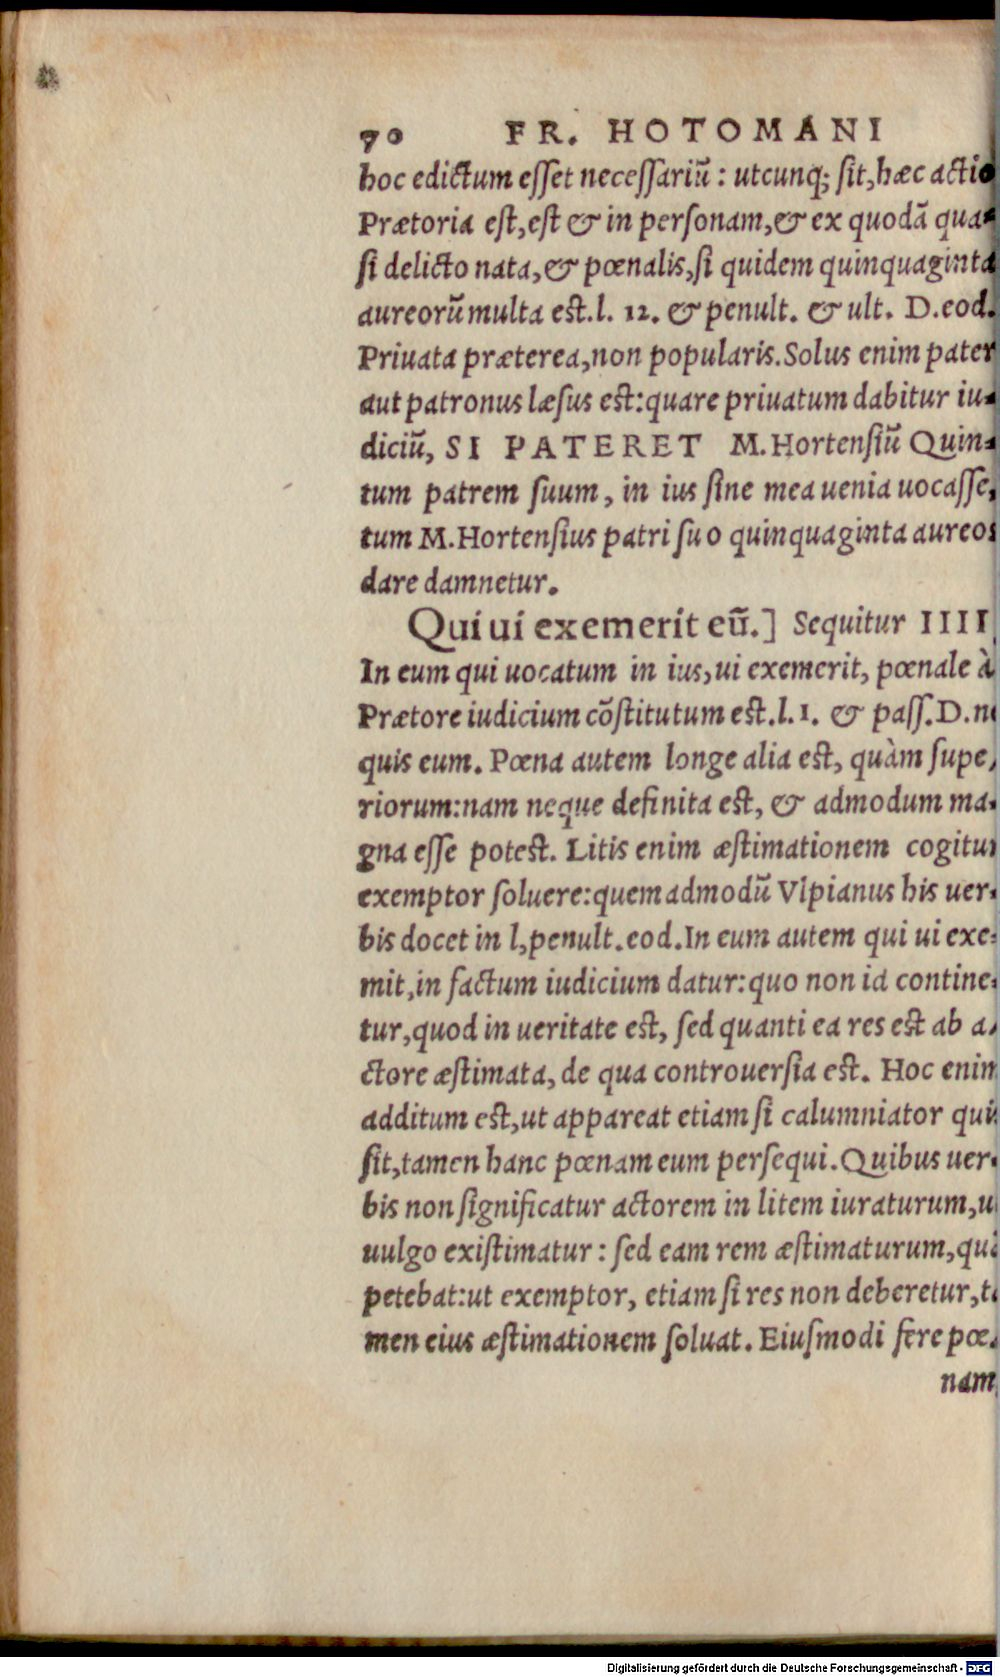 70 FR. HOTOMANI
hoc edictum esset necessariũ: utcunq; sit, hæc actio
Prætoria est, est & in personam, & ex quodã qua-
si delicto nata, & pœnalis, si quidem quinquaginta
aureorũ multa est. l. 12. & penult. & ult. D. eod.
Priuata præterea, non popularis. Solus enim pater
aut patronus læsus est: quare priuatum dabitur iu-
diciũ, SI PATERET M. Hortensiũ Quin-
tum patrem suum, in ius sine mea uenia uocasse,
tum M. Hortensius patri suo quinquaginta aureos
dare damnetur.
Qui ui exemerit eũ.] Sequitur IIII
In eum qui uocatum in ius, ui exemerit, pœnale à
Prætore iudicium cõstitutum est. l. 1. & pass. D. ne
quis eum. Pœna autem longe alia est, quàm supe-
riorum: nam neque definita est, & admodum ma-
gna esse potest. Litis enim æstimationem cogitur
exemptor soluere: quemadmodũ Vlpianus his uer-
bis docet in l, penult. eod. In eum autem qui ui exe-
mit, in factum iudicium datur: quo non id contine-
tur, quod in ueritate est, sed quanti ea res est ab a-
ctore æstimata, de qua controuersia est. Hoc enim
additum est, ut appareat etiam si calumniator quis
sit, tamen hanc pœnam eum persequi. Quibus uer-
bis non significatur actorem in litem iuraturum, u
uulgo existimatur: sed eam rem æstimaturum, quã
petebat: ut exemptor, etiam si res non deberetur, ta
men eius æstimationem soluat. Eiusmodi fere pœ-
nam
Digitalisierung gefördert durch die Deutsche Forschungsgemeinschaft - DFG